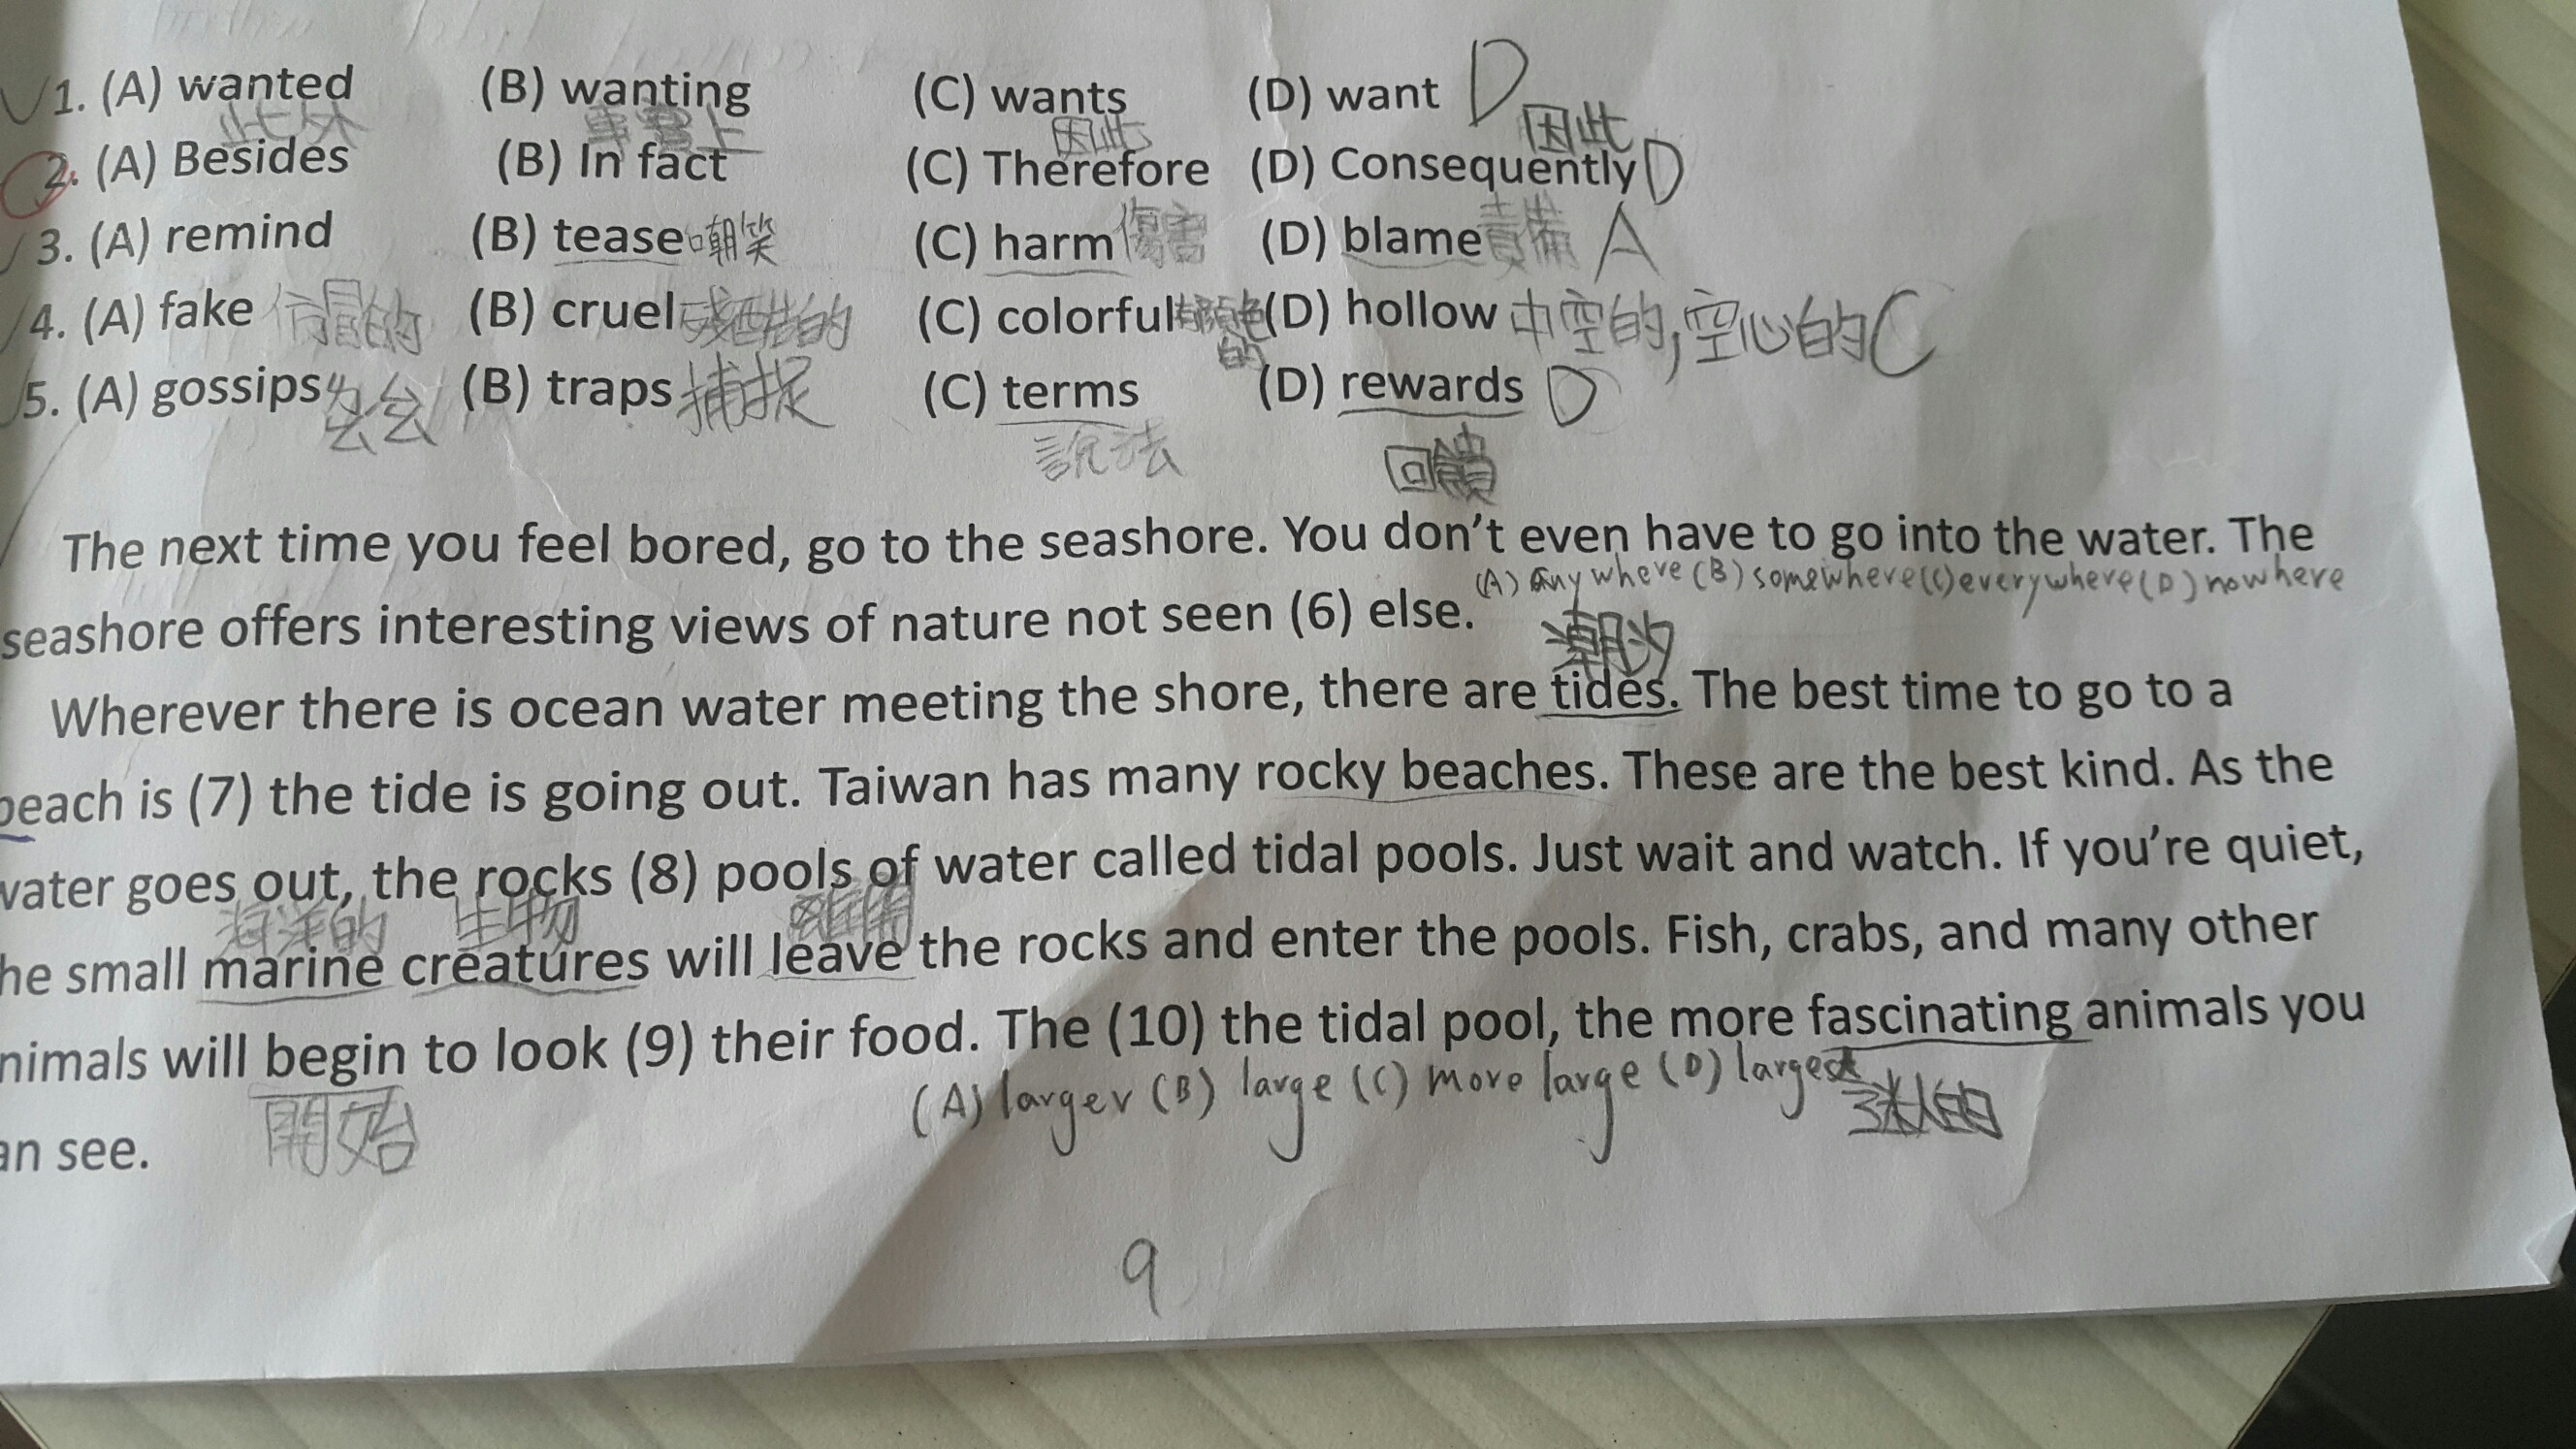 此外 事實上 因此 因此
1. (A) wanted (B) wanting (C) wants (D) want D
2. (A) Besides (B) In fact (C) Therefore (D) Consequently D
3. (A) remind (B) tease 嘲笑 (C) harm 傷害 (D) blame 責備 A
4. (A) fake 仿冒的 (B) cruel 殘酷的 (C) colorful 顏色的 (D) hollow 中空的,空心的 C
5. (A) gossips 八公 (B) traps 捕捉 (C) terms (D) rewards D
說法 回饋
The next time you feel bored, go to the seashore. You don't even have to go into the water. The
(A) anywhere (B) somewhere (C) everywhere (D) nowhere
seashore offers interesting views of nature not seen (6) else.
潮汐
Wherever there is ocean water meeting the shore, there are tides. The best time to go to a
beach is (7) the tide is going out. Taiwan has many rocky beaches. These are the best kind. As the
water goes out, the rocks (8) pools of water called tidal pools. Just wait and watch. If you're quiet,
海洋的 生物 離開
he small marine creatures will leave the rocks and enter the pools. Fish, crabs, and many other
nimals will begin to look (9) their food. The (10) the tidal pool, the more fascinating animals you
開始 (A) larger (B) large (C) more large (D) largest
an see.
9